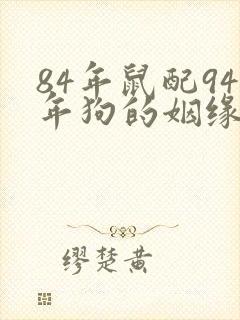 84年鼠配94
年狗的姻缘
缪楚黄